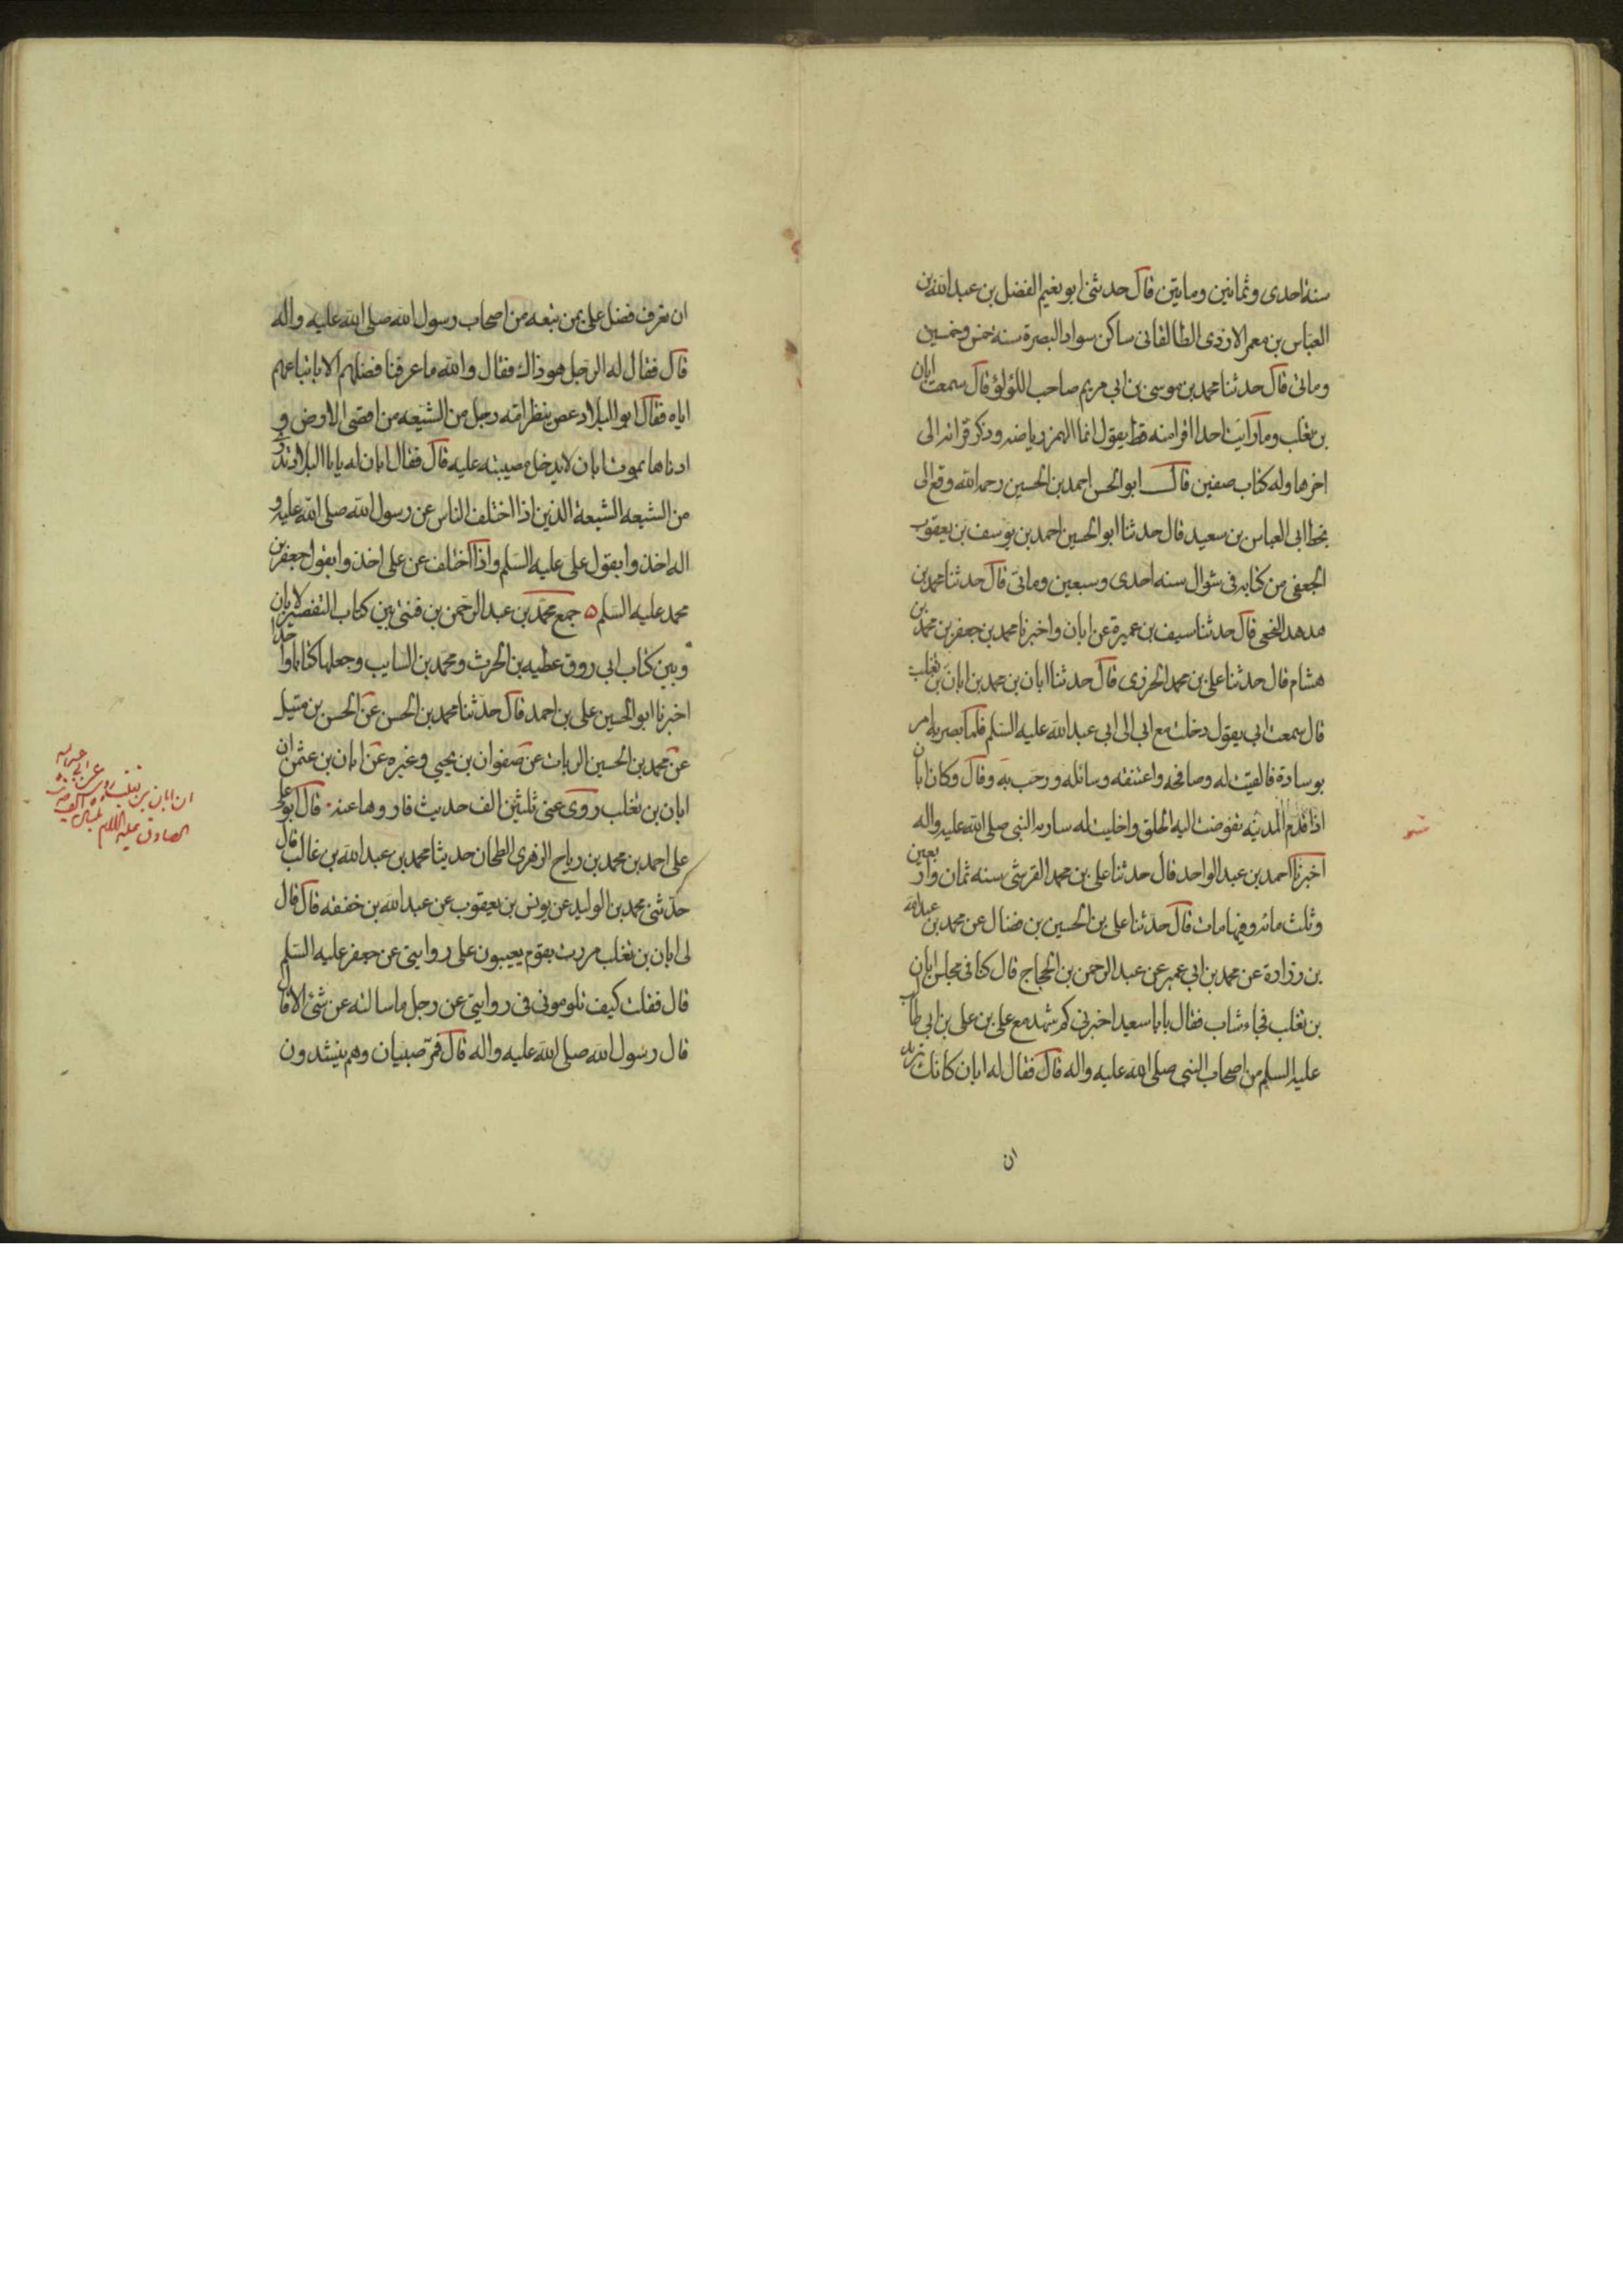 سنة احدى وثمانين وماتين قال حدثنى ابو نعيم الفضل بن عبد الله بن
العباس بن معمر الازدى الطالقانى ساكن سواد البصرة سنه خمس وخمسين
وماتى قال حدثنا محمد بن موسى بن ابى مريم صاحب اللؤلؤ قال سمعت ابان
بن تغلب وما رايت احدا اقرا منه قط يقول انما الهمز رياضه وذكر قراته الى
اخرها وله كتاب صفين قال ابو الحسن احمد بن الحسين رحمه الله وقع الى
بخط ابى العباس بن سعيد قال حدثنا ابو الحسين احمد بن يوسف بن يعقوب
الجعفى من كتابه فى شوال سنه احدى وسبعين وماتى قال حدثنا محمد بن
قال حدثنا سيف بن عميرة عن ابان واخبرنا محمد بن جعفر بن محمد بن
هشام قال حدثنا على بن محمد الحرزى قال حدثنا ابان بن محمد بن ابان بن تغلب
قال سمعت ابى يقول دخلت مع ابى الى ابى عبد الله عليه السلم فلما بصر به امر
بوسادة فالقيت له وصافحه واعتنقه وسائله ورحب به وقال وكان ابان
اذا قدم المدينه تقوضت اليه الحلق واخليت له ساريه النبى صلى الله عليه واله
اخبرنا احمد بن عبد الواحد قال حدثنا على بن محمد القرشى سنه ثمان واربعين
وثلث مائه وفيها مات قال حدثنا على بن الحسين بن فضال عن محمد بن عبد الله
بن زرارة عن محمد بن ابى عمير عن عبد الرحمن بن الحجاج قال كنا فى مجلس ابان
بن تغلب فجاء شاب فقال يابا سعيد اخبرنى كم شهد مع على بن على بن ابى طالب
عليه السلم من اصحاب النبى صلى الله عليه واله قال فقال له ابان كانك تريد
ان
ان تعرف فضل على بمن تبعه من اصحاب رسول الله صلى الله عليه واله
قال فقال له الرجل هو ذاك فقال والله ما عرفنا فضلهم الا باتباعهم
اياه فقال ابو البلاد عض ببظر امه رجل من الشيعه من اقصى الارض و
ادناها يموت ابان لا يدخل مصيبته عليه قال فقال ابان له يابا البلاد تدرى
من الشيعه الشيعة الذين اذا اختلف الناس عن رسول الله صلى الله عليه و
اله اخذوا بقول على عليه السلم واذا اختلف عن على اخذوا بقول جعفر بن
محمد عليه السلم ٥ جمع محمد بن عبد الرحمن بن فنتى بين كتاب التفصير لابان
وبين كتاب ابى روق عطيه بن الحرث ومحمد بن السايب وجعلها كتابا واحدا
اخبرنا ابو الحسين على بن احمد قال حدثنا محمد بن الحسن عن الحسن بن متيل
عن محمد بن الحسين الزيات عن صفوان بن يحيى وغيره عن ابان بن عثمن ان
ابان بن تغلب روى عنى ثلثين الف حديث فاروها عنه قال ابو على
على احمد بن محمد بن رياح الزهرى الطحان حديثا محمد بن عبد الله بن غالب قال
حدثنى محمد بن الوليد عن يونس بن يعقوب عن عبد الله بن خفقه قال قال
لى ابان بن تغلب مررت بقوم يعيبون على روايتى عن جعفر عليه السلم
قال فقلت كيف تلومونى فى روايتى عن رجل ما سالته عن شئ الا قال
قال رسول الله صلى الله عليه واله قال فمر صبيان وهم ينشدون
ان ابان بن تغلب روى عن ابى عبد الله
الصادق عليه السلام